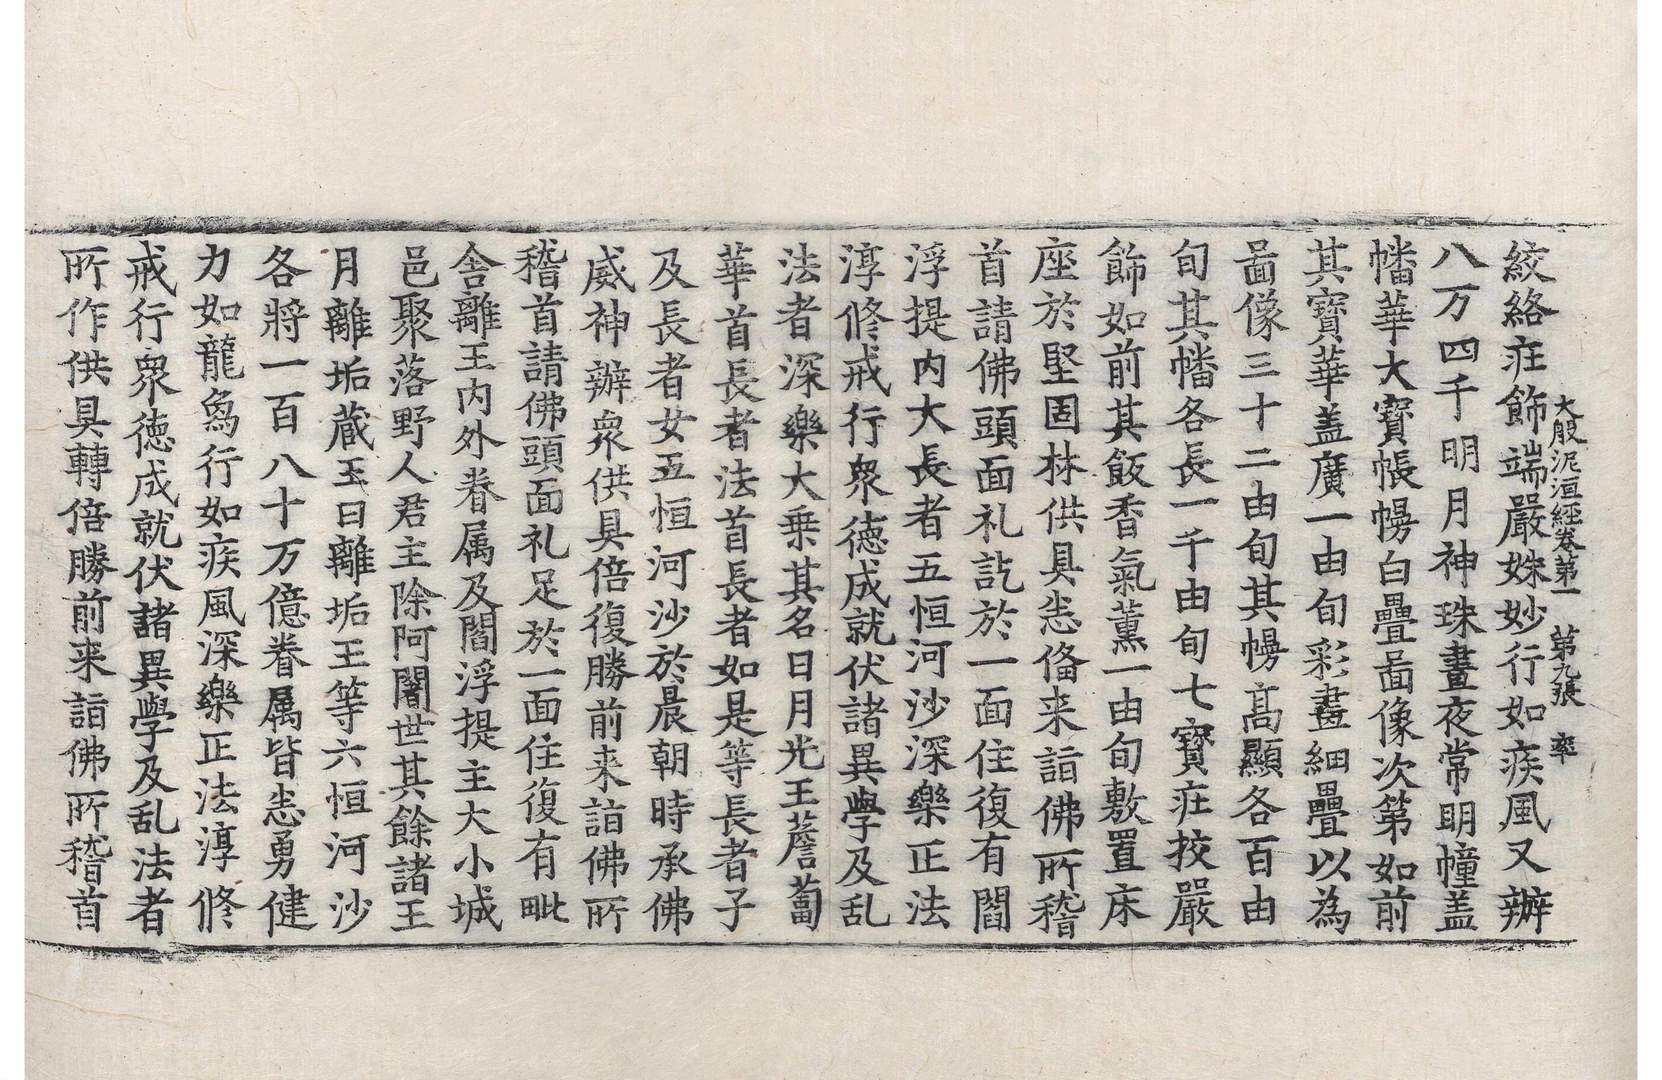 大般泥洹經卷第一　第九張　率
絞絡疘飾端嚴姝妙行如疾風又辦
八万四千明月神珠晝夜常明幢盖
幡華大寳帳幔白疊啚像次第如前
其寳華盖廣一由旬彩畫細疊以為
啚像三十二由旬其幔髙顯各百由
旬其幡各長一千由旬七寳疘挍嚴
飾如前其飯香氣薫一由旬敷置床
座於堅固林供具恙俻来詣佛所稽
首請佛頭面礼訖於一面住復有閻
浮提内大長者五恒河沙深樂正法
淳修戒行衆徳成就伏諸異學及乱
法者深樂大乗其名日月光王薝蔔
華首長者法首長者如是等長者子
及長者女五恒河沙於晨朝時承佛
威神辦衆供具倍復勝前来詣佛所
稽首請佛頭面礼足於一面住復有毗
舎離王内外眷属及閻浮提主大小城
邑聚落野人君主除阿闍世其餘諸王
月離垢蔵王日離垢王等六恒河沙
各將一百八十万億眷属皆恙勇健
力如龍烏行如疾風深樂正法淳修
戒行衆徳成就伏諸異學及乱法者
所作供具轉倍勝前来詣佛所稽首